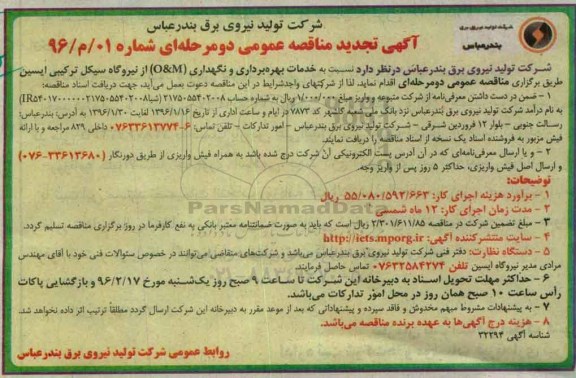 شرکت تولید نیروی برق بندرعباس
شرکت تولید نیروی برق
بندرعباس
آگهی تجدید مناقصه عمومی دومرحله‌ای شماره ۰۱/م/۹۶
شرکت تولید نیروی برق بندرعباس درنظر دارد نسبت به خدمات بهره‌برداری و نگهداری (O&M) از نیروگاه سیکل ترکیبی ایسین
طریق برگزاری مناقصه عمومی دومرحله‌ای اقدام نماید. لذا از شرکتهای واجدشرایط در این مناقصه دعوت بعمل می‌آید، جهت دریافت اسناد مناقصه:
۱ - ضمن در دست داشتن معرفی‌نامه از شرکت متبوعه و واریز مبلغ ۱/۰۰۰/۰۰۰ ریال به شماره حساب ۲۱۷۵۰۵۵۴۰۲۰۰۸
به نام درآمد شرکت تولید نیروی برق بندرعباس نزد بانک شعبه گلشهر کد ۷۸۷۳ در ایام و ساعت اداری از تاریخ ۱۳۹۶/۱/۱۶ لغایت ۱۳۹۶/۱/۳۰ به آدرس: بندرعباس:
رسالت جنوبی - بلوار ۱۲ فروردین شرقی - شرکت تولید نیروی برق بندرعباس - امور تدارکات - تلفن تماس: ۶-۰۷۶۳۳۶۱۳۷۷۴ داخلی ۸۲۹ مراجعه و با ارائه
فیش مزبور به فروشنده اسناد یک نسخه از اسناد مناقصه را دریافت نمایند.
۲ - و یا ارسال معرفی‌نامه‌ای که در آن آدرس پست الکترونیکی آن شرکت درج شده باشد به همراه فیش واریزی از طریق دورنگار (۳۳۶۱۳۶۸۰-۰۷۶)
و ارسال اصل فیش واریزی، حداکثر ۵ روز پس از واریز وجه.
توضیحات:
۱ - برآورد هزینه اجرای کار: ۵۵/۰۸۰/۵۹۲/۶۶۳ ریال
۲ - مدت زمان اجرای کار: ۱۲ ماه شمسی
۳ - مبلغ تضمین شرکت در مناقصه ۲/۳۰۱/۶۱۱/۸۵ ریال است که باید به صورت ضمانتنامه معتبر بانکی به نفع کارفرما در روز برگزاری مناقصه تسلیم گردد.
۴ - سایت منتشرکننده آگهی: http://iets.mporg.ir
۵ - دستگاه نظارت: دفتر فنی شرکت تولید نیروی برق بندرعباس می‌باشد و شرکت‌های متقاضی می‌توانند در خصوص سئوالات فنی خود با آقای مهندس
مرادی مدیر نیروگاه ایسین تلفن ۰۷۶۳۲۵۸۴۲۷۴ تماس حاصل فرمایند.
۶ - حداکثر مهلت تحویل اسناد به دبیرخانه این شرکت تا ساعت ۹ صبح روز یک‌شنبه مورخ ۹۶/۲/۱۷ و بازگشایی پاکات
رأس ساعت ۱۰ صبح همان روز در محل امور تدارکات می‌باشد.
۷ - به پیشنهادات مشروط مبهم مخدوش و فاقد سپرده و پیشنهاداتی که بعد از موعد مقرر به دبیرخانه این شرکت ارسال گردد مطلقاً ترتیب اثر داده نخواهد شد.
۸ - هزینه درج آگهی‌ها به عهده برنده مناقصه می‌باشد.
شناسه آگهی ۳۲۲۹۴
روابط عمومی شرکت تولید نیروی برق بندرعباس
ParsNamadData